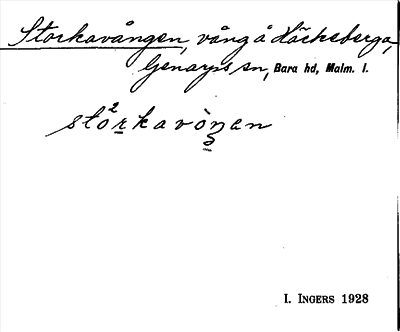 Storkavången, vång å Häckeberga,
Genarps sn, Bara hd, Malm. l.
sto²rkavòŋen
I. INGERS 1928